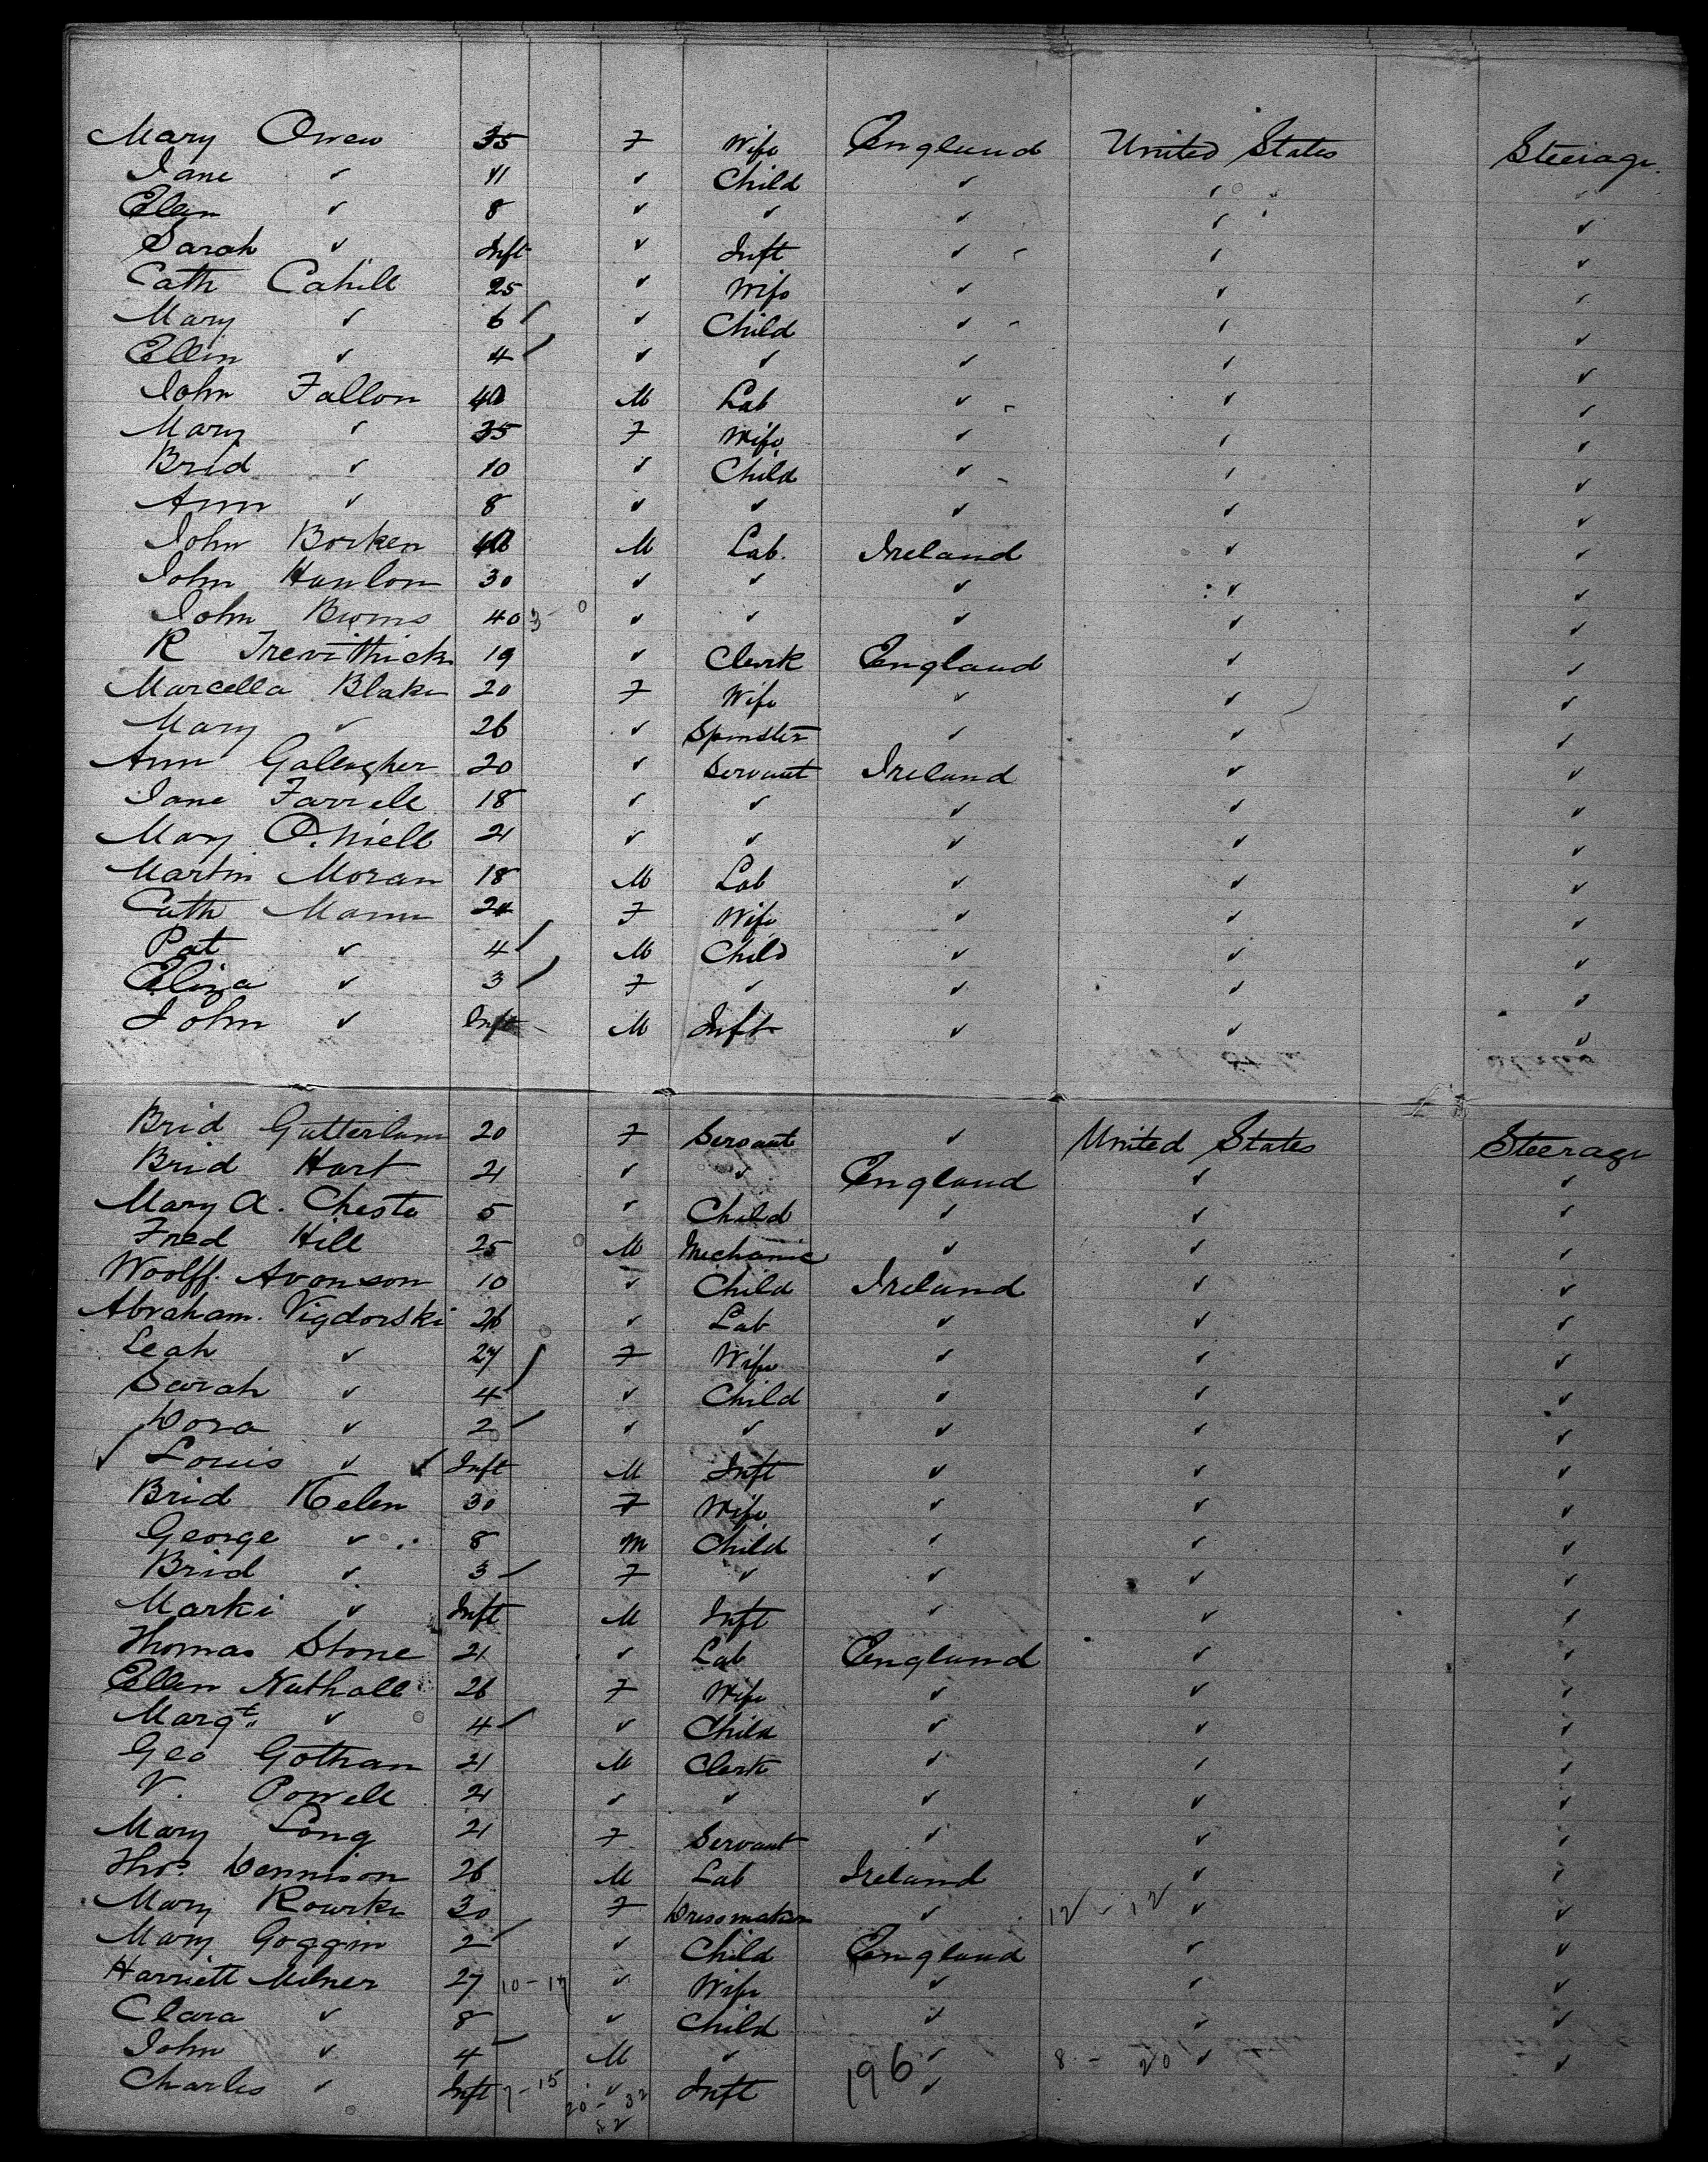 Mary Owen 35 F Wife England United States Steerage.
Jane ✓ 11 ✓ Child ✓ ✓ ✓
Ellen ✓ 8 ✓ ✓ ✓ ✓ ✓
Sarah ✓ Inft ✓ Inft ✓ ✓ ✓
Cath Cahill 25 ✓ Wife ✓ ✓ ✓
Mary ✓ 6 ✓ Child ✓ ✓ ✓
Ellin ✓ 4 ✓ ✓ ✓ ✓ ✓
John Fallon 40 M Lab ✓ ✓ ✓
Mary ✓ 35 F Wife ✓ ✓ ✓
Brid ✓ 10 ✓ Child ✓ ✓ ✓
Ann ✓ 8 ✓ ✓ ✓ ✓ ✓
John Borken M Lab. Ireland ✓ ✓
John Hanlon 30 ✓ ✓ ✓ ✓ ✓
John Burns 40 ✓ ✓ ✓ ✓ ✓
R Trevithick 19 ✓ Clerk England ✓ ✓
Marcella Blake 20 F Wife ✓ ✓ ✓
Mary ✓ 26 ✓ Spinster ✓ ✓ ✓
Ann Galeagher 20 ✓ Servant Ireland ✓ ✓
Jane Farrell 18 ✓ ✓ ✓ ✓ ✓
Mary O.Niell 21 ✓ ✓ ✓ ✓ ✓
Martin Moran 18 M Lab ✓ ✓ ✓
Cath Mann 24 F Wife ✓ ✓ ✓
Pat ✓ 4 M Child ✓ ✓ ✓
Eliza ✓ 3 F ✓ ✓ ✓ ✓
John ✓ Inft M Inft ✓ ✓ ✓
Brid Gutterlum 20 F Servant ✓ United States Steerage
Brid Hart 21 ✓ ✓ England ✓ ✓
Mary A. Cheste 5 ✓ Child ✓ ✓ ✓
Fred Hill 25 M Mechanic ✓ ✓ ✓
Woolff. Avonson 10 ✓ Child Ireland ✓ ✓
Abraham. Vigdorski 26 ✓ Lab ✓ ✓ ✓
Leah ✓ 27 F Wife ✓ ✓ ✓
Sarah ✓ 4 ✓ Child ✓ ✓ ✓
Dora ✓ 2 ✓ ✓ ✓ ✓ ✓
✓ Louis ✓ ✓ Inft M Inft ✓ ✓ ✓
Brid Kelen 30 F Wife ✓ ✓ ✓
George ✓ 8 M Child ✓ ✓ ✓
Brid ✓ 3 F ✓ ✓ ✓ ✓
Marki ✓ Inft M Inft ✓ ✓ ✓
Thomas Stone 21 ✓ Lab England ✓ ✓
Ellen Nuthall 26 F Wife ✓ ✓ ✓
Margt ✓ 4 ✓ Child ✓ ✓ ✓
Geo Gotham 21 M Clerk ✓ ✓ ✓
V. Powell 21 ✓ ✓ ✓ ✓ ✓
Mary Long 21 F Servant ✓ ✓ ✓
Thos Dennison 26 M Lab Ireland ✓ ✓
Mary Rourke 30 F Dressmaker ✓ 12 - 12 ✓ ✓
Mary Goggin 2 ✓ Child England ✓ ✓
Harriett Milner 27 10 - 17 ✓ Wife ✓ ✓ ✓
Clara ✓ 8 ✓ Child ✓ ✓ ✓
John ✓ 4 M ✓ ✓ 8 - 20 ✓ ✓
Charles ✓ Inft 7 - 15 ✓ Inft 196 ✓
20 - 32
52